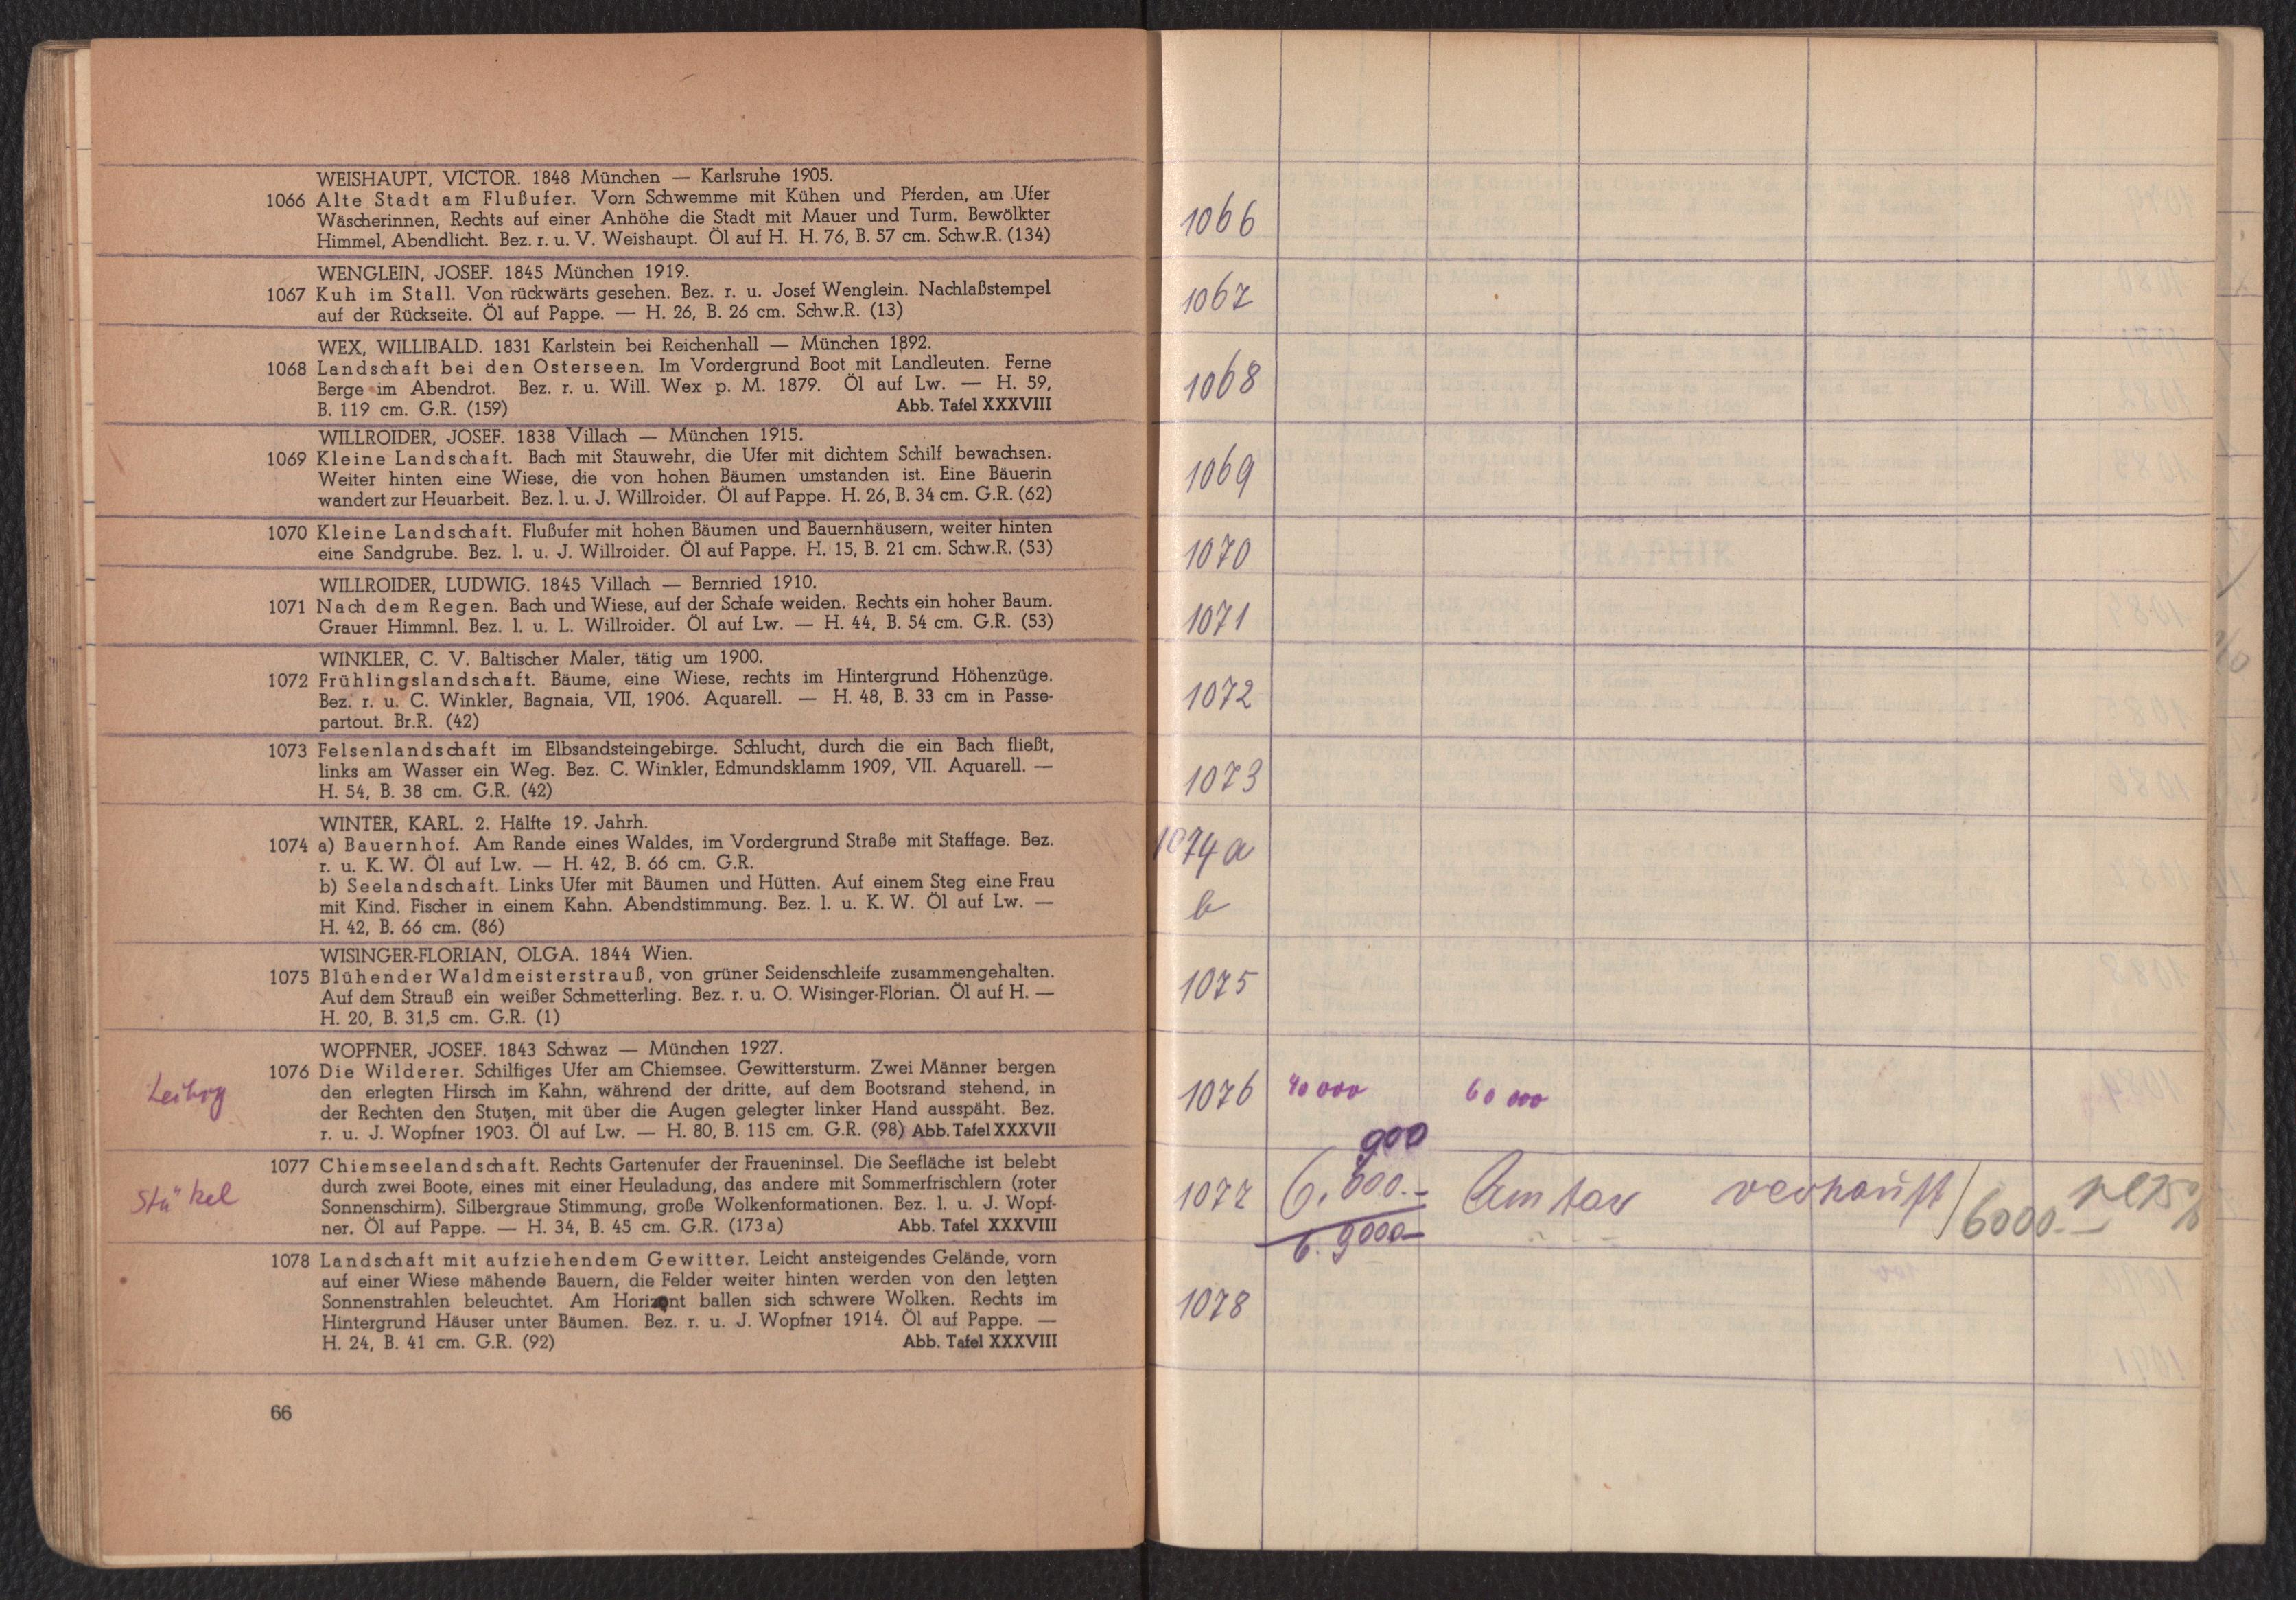 WEISHAUPT, VICTOR. 1848 München — Karlsruhe 1905.
1066 Alte Stadt am Flußufer. Vorn Schwemme mit Kühen und Pferden, am Ufer
Wäscherinnen, Rechts auf einer Anhöhe die Stadt mit Mauer und Turm. Bewölkter
Himmel, Abendlicht. Bez. r. u. V. Weishaupt. Öl auf H. H. 76, B. 57 cm. Schw.R. (134)
WENGLEIN, JOSEF. 1845 München 1919.
1067 Kuh im Stall. Von rückwärts gesehen. Bez. r. u. Josef Wenglein. Nachlaßstempel
auf der Rückseite. Öl auf Pappe. — H. 26, B. 26 cm. Schw.R. (13)
WEX, WILLIBALD. 1831 Karlstein bei Reichenhall — München 1892.
1068 Landschaft bei den Osterseen. Im Vordergrund Boot mit Landleuten. Ferne
Berge im Abendrot. Bez. r. u. Will. Wex p. M. 1879. Öl auf Lw. — H. 59,
B. 119 cm. G.R. (159) Abb. Tafel XXXVIII
WILLROIDER, JOSEF. 1838 Villach — München 1915.
1069 Kleine Landschaft. Bach mit Stauwehr, die Ufer mit dichtem Schilf bewachsen.
Weiter hinten eine Wiese, die von hohen Bäumen umstanden ist. Eine Bäuerin
wandert zur Heuarbeit. Bez. l. u. J. Willroider. Öl auf Pappe. H. 26, B. 34 cm. G.R. (62)
1070 Kleine Landschaft. Flußufer mit hohen Bäumen und Bauernhäusern, weiter hinten
eine Sandgrube. Bez. l. u. J. Willroider. Öl auf Pappe. H. 15, B. 21 cm. Schw.R. (53)
WILLROIDER, LUDWIG. 1845 Villach — Bernried 1910.
1071 Nach dem Regen. Bach und Wiese, auf der Schafe weiden. Rechts ein hoher Baum.
Grauer Himmnl. Bez. l. u. L. Willroider. Öl auf Lw. — H. 44, B. 54 cm. G.R. (53)
WINKLER, C. V. Baltischer Maler, tätig um 1900.
1072 Frühlingslandschaft. Bäume, eine Wiese, rechts im Hintergrund Höhenzüge.
Bez. r. u. C. Winkler, Bagnaia, VII, 1906. Aquarell. — H. 48, B. 33 cm in Passe-
partout. Br.R. (42)
1073 Felsenlandschaft im Elbsandsteingebirge. Schlucht, durch die ein Bach fließt,
links am Wasser ein Weg. Bez. C. Winkler, Edmundsklamm 1909, VII. Aquarell. —
H. 54, B. 38 cm. G.R. (42)
WINTER, KARL. 2. Hälfte 19. Jahrh.
1074 a) Bauernhof. Am Rande eines Waldes, im Vordergrund Straße mit Staffage. Bez.
r. u. K. W. Öl auf Lw. — H. 42, B. 66 cm. G.R.
b) Seelandschaft. Links Ufer mit Bäumen und Hütten. Auf einem Steg eine Frau
mit Kind. Fischer in einem Kahn. Abendstimmung. Bez. l. u. K. W. Öl auf Lw. —
H. 42, B. 66 cm. (86)
WISINGER-FLORIAN, OLGA. 1844 Wien.
1075 Blühender Waldmeisterstrauß, von grüner Seidenschleife zusammengehalten.
Auf dem Strauß ein weißer Schmetterling. Bez. r. u. O. Wisinger-Florian. Öl auf H. —
H. 20, B. 31,5 cm. G.R. (1)
WOPFNER, JOSEF. 1843 Schwaz — München 1927.
1076 Die Wilderer. Schilfiges Ufer am Chiemsee. Gewittersturm. Zwei Männer bergen
den erlegten Hirsch im Kahn, während der dritte, auf dem Bootsrand stehend, in
der Rechten den Stutzen, mit über die Augen gelegter linker Hand ausspäht. Bez.
r. u. J. Wopfner 1903. Öl auf Lw. — H. 80, B. 115 cm. G.R. (98) Abb. Tafel XXXVII
1077 Chiemseelandschaft. Rechts Gartenufer der Fraueninsel. Die Seefläche ist belebt
Stückel
durch zwei Boote, eines mit einer Heuladung, das andere mit Sommerfrischlern (roter
Sonnenschirm). Silbergraue Stimmung, große Wolkenformationen. Bez. l. u. J. Wopf-
ner. Öl auf Pappe. — H. 34, B. 45 cm. G.R. (173a) Abb. Tafel XXXVIII
1078 Landschaft mit aufziehendem Gewitter. Leicht ansteigendes Gelände, vorn
auf einer Wiese mähende Bauern, die Felder weiter hinten werden von den letzten
Sonnenstrahlen beleuchtet. Am Horizont ballen sich schwere Wolken. Rechts im
Hintergrund Häuser unter Bäumen. Bez. r. u. J. Wopfner 1914. Öl auf Pappe. —
H. 24, B. 41 cm. G.R. (92) Abb. Tafel XXXVIII
66
1066
1067
1068
1069
1070
1071
1072
1073
1074a
b
1075
1076 40000 60000
900
1077 6.000.- verkauft / 6000.-
6.9000-
1078